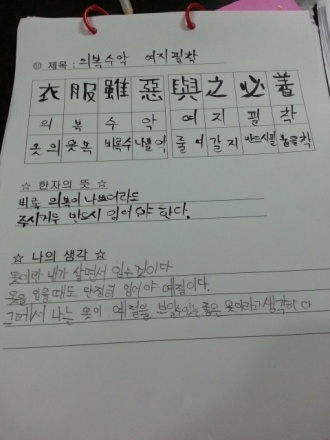 ◎ 제목 : 의복수악 여지필착
衣 服 雖 惡 與 之 必 著
의 복 수 악 여 지 필 착
옷 의 옷 복 비록 수 나쁠 악 줄 여 갈 지 반드시 필 붙을 착
☆ 한자의 뜻 ☆
비록 의복이 나쁘더라도
주시거든 반드시 입어야 한다.
☆ 나의 생각 ☆
옷이란 내가 살면서 입는 것이다.
옷을 입을 때도 단정히 입어야 예절이다.
그래서 나는 옷이 예절을 보일수있는 좋은 옷이라고 생각한다